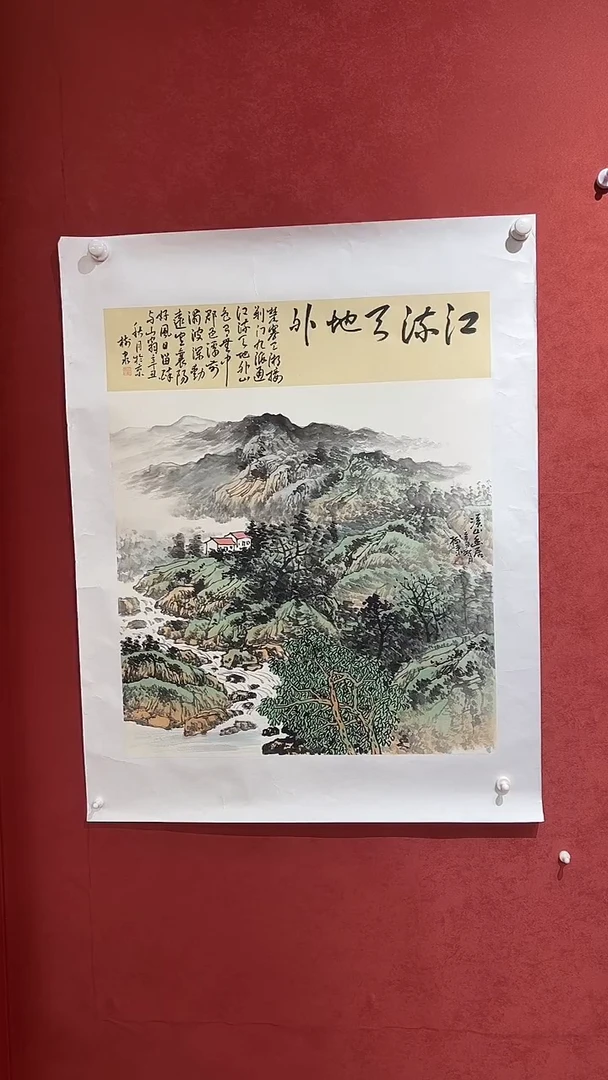 江流天地外
楚塞三湘接
荆门九派通
江流天地外山
色有无中
郡邑浮前
浦波澜动
远空襄阳
好风日留醉
与山翁辛丑
秋月於京
溪山居